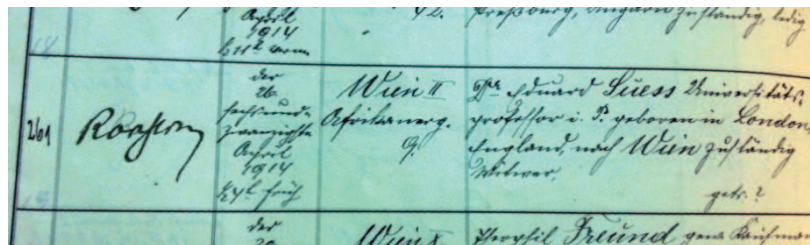 April
1914
Preßburg, Ungarn zuständig, ledig
261
der
26.
sechsund-
zwanzigste
April
1914
früh
Wien II
Afrikanerg.
9.
Eduard Suess Universitäts
professor i. P. geboren in London,
England, nach Wien zuständig
Witwer.
getr. ?
der
Wien X
Theophil Freund gew. Kaufmann